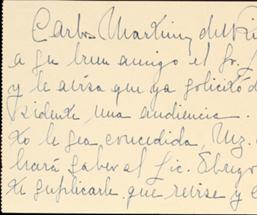 Carlos Martinez del Ri
a su buen amigo el Sr.
y le avisa que ya solicitó d
sidente una audiencia.
to le sea concedida, Mz.
hará saber al Lic. Obrego
te suplicarle que revise y c